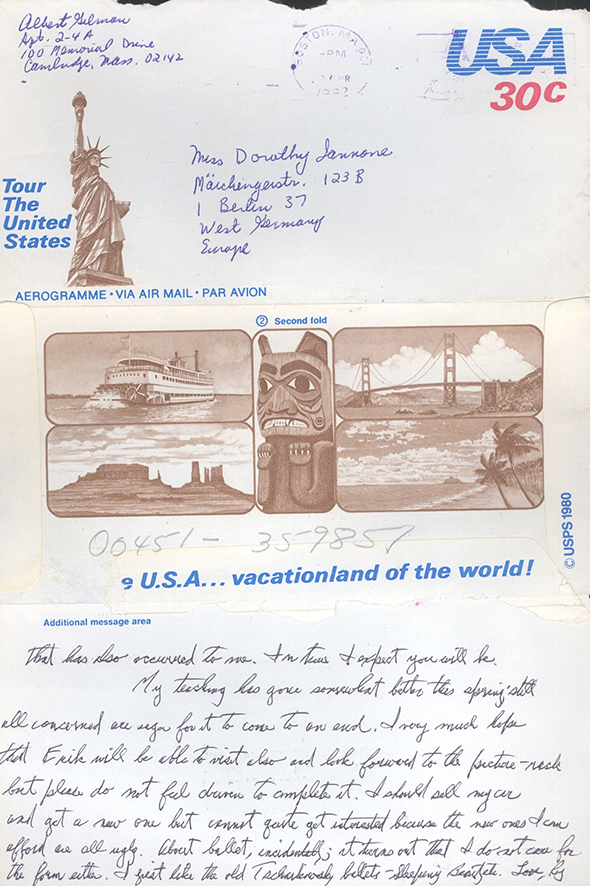 Albert Gelman
Apt. 2-4A
100 Memorial Drive
Cambridge, Mass. 02142
BOSTON, MA
PM
USA
30c
Miss Dorothy Iannone
123 B
1 Berlin 37
West Germany
Europe
Tour
The
United
States
AEROGRAMME • VIA AIR MAIL • PAR AVION
② Second fold
© USPS 1980
00451- 359857
e U.S.A... vacationland of the world!
Additional message area
that has also occurred to me. In time I expect you will be.
My teaching has gone somewhat better this spring; still
all concerned are eager for it to come to an end. I very much hope
that Erik will be able to visit also and look forward to the picture-
but please do not feel driven to complete it. I should sell my car
and get a new one but cannot quite get interested because the new ones I can
afford are all ugly. About ballet, incidentally; it turns out that I do not care for
the form either. I just like the old Tschaikovsky ballets - Sleeping Love,